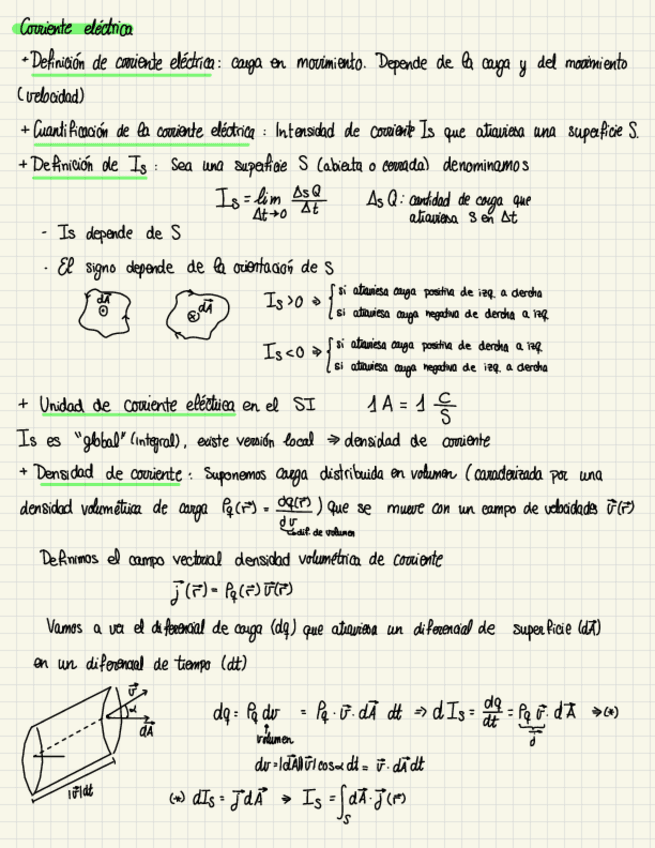 Corriente eléctrica
+ Definición de corriente eléctrica: carga en movimiento. Depende de la carga y del movimiento
(velocidad)
+ Cuantificación de la corriente eléctrica: Intensidad de corriente Is que atraviesa una superficie S.
+ Definición de Is: Sea una superficie S (abierta o cerrada) denominamos
Is = lim Δt→0 ΔsQ/Δt    ΔsQ: cantidad de carga que
atraviesa S en Δt
- Is depende de S
· El signo depende de la orientación de S
dA⃗ ⊙    ⊗ dA⃗    Is>0 ⇒ { si atraviesa carga positiva de izq. a dercha
si atraviesa carga negativa de dercha a izq.
Is<0 ⇒ { si atraviesa carga positiva de dercha a izq.
si atraviesa carga negativa de izq. a dercha
+ Unidad de corriente eléctrica en el SI    1 A = 1 C/S
Is es "global" (integral), existe versión local ⇒ densidad de corriente
+ Densidad de corriente: Suponemos carga distribuida en volumen (caracterizada por una
densidad volumétrica de carga ρq(r⃗) = dq(r⃗)/dv) que se mueve con un campo de velocidades v⃗(r⃗)
dif. de volumen
Definimos el campo vectorial densidad volumétrica de corriente
j⃗(r⃗) = ρq(r⃗) v⃗(r⃗)
Vamos a ver el diferencial de carga (dq) que atraviesa un diferencial de superficie (dA⃗)
en un diferencial de tiempo (dt)
v⃗
α
dA⃗
|v⃗|dt
dq = ρq dv = ρq · v⃗ · dA⃗ dt ⇒ dIs = dq/dt = ρq v⃗ · dA⃗ ⇒(*)
volumen    j⃗
dv = |dA⃗||v⃗| cos α dt = v⃗ · dA⃗ dt
(*) dIs = j⃗ dA⃗ ⇒ Is = ∫S dA⃗ · j⃗(r⃗)